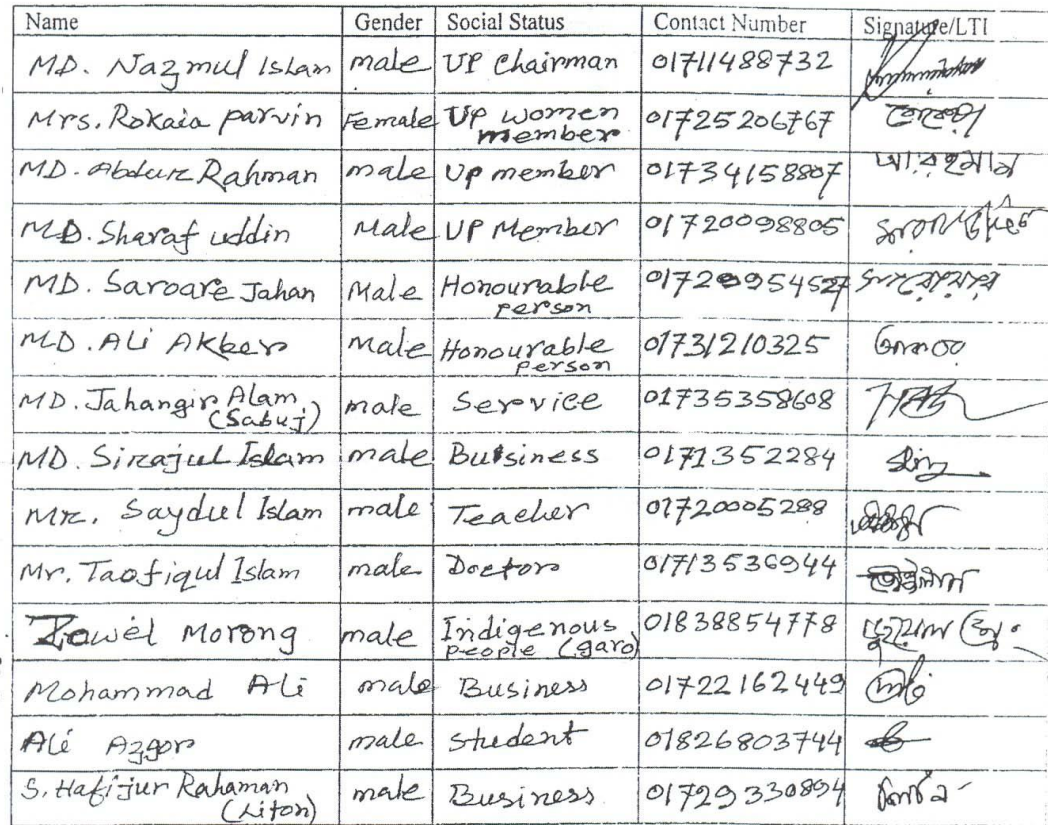 Name Gender Social Status Contact Number Signature/LTI
MD. Nazmul Islam male UP Chairman 01711488732
Mrs. Rokaia parvin Female UP women member 01725206767
MD. Abdur Rahman male Up member 01734158807
MD. Sharaf uddin Male UP Member 01720098805
MD. Saroare Jahan Male Honourable person
MD. Ali Akber Male Honourable person 01731210325
MD. Jahangir Alam (Sabuj) male Service 01735358608
MD. Sirajul Islam male Business 0171352284
Mr. Saydul Islam male Teacher 01720005288
Mr. Taofiqul Islam male Doctor 01713536944
Zowel Morong male Indigenous people (garo) 01838854778
Mohammad Ali male Business 01722162449
Ali Azgor male student 01826803744
S. Hafijur Rahaman (Liton) male Business 01729330894